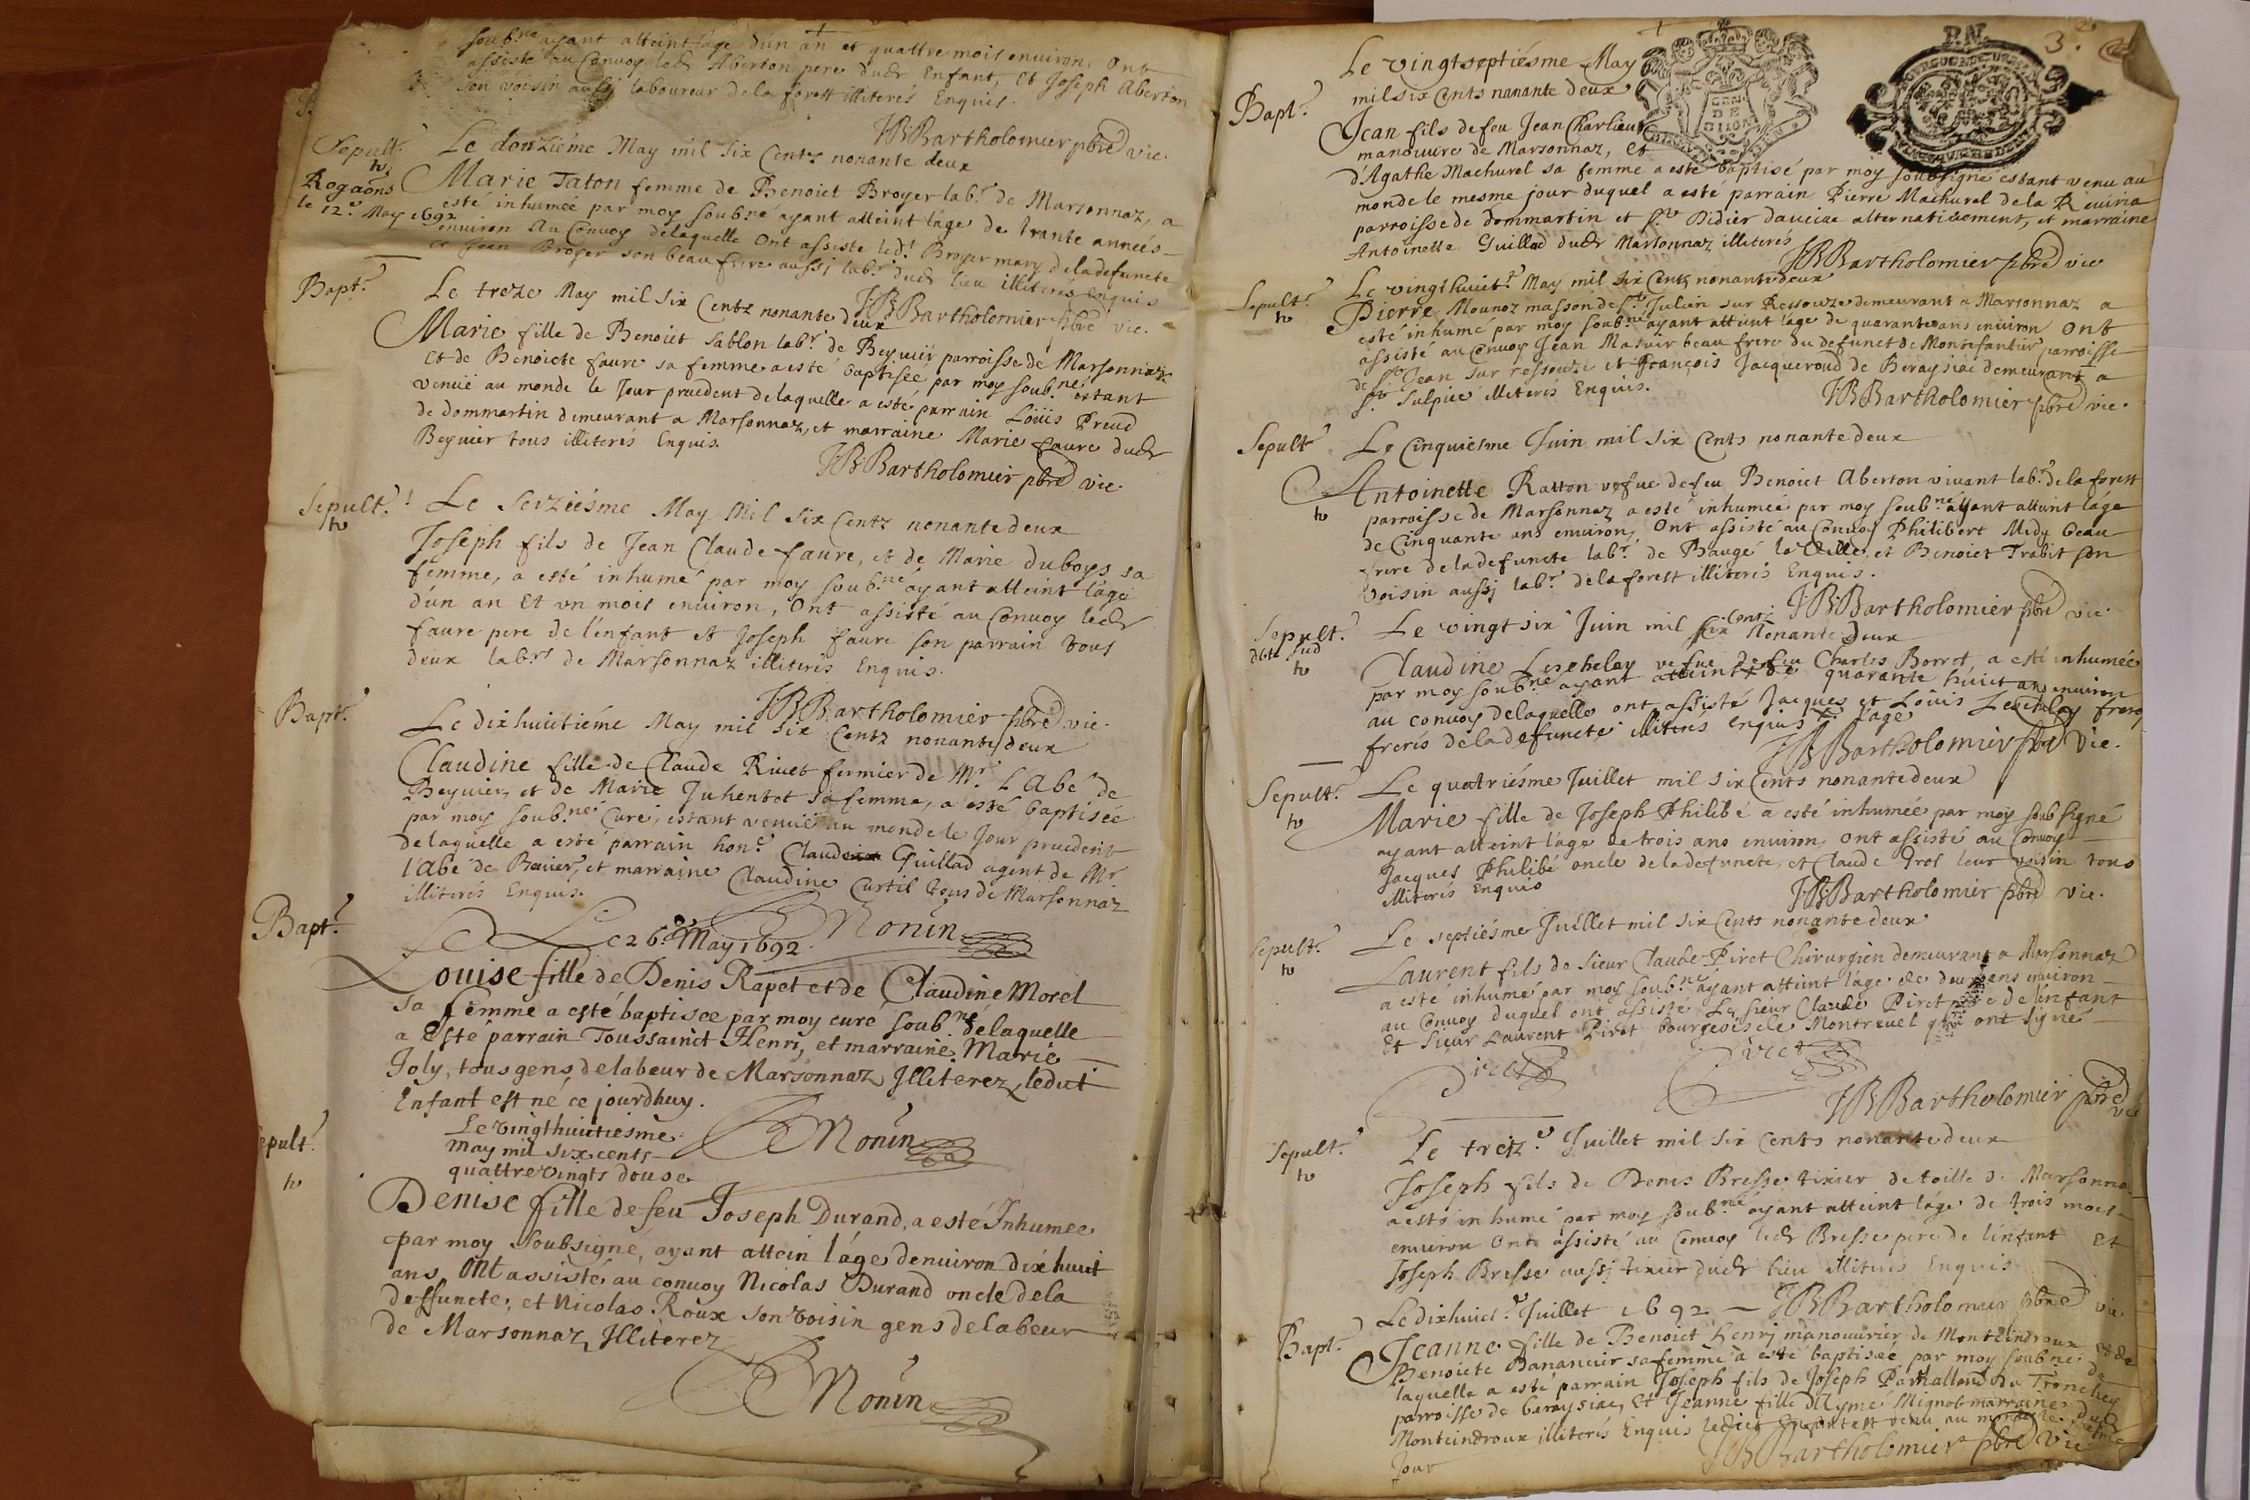 soub.né ayant atteint l'age d'un an et quattre mois environ, Ont
assisté au Convoy led. Aberton pere dud. Enfant, Et Joseph Aberton
son voisin aussj laboureur de la forest illiterés Enquis.
JBBartholomier pbre vic.
Sepult.e
Rogaõns
le 12.e May 1692
Le douzième May mil six Centz nonante deux
Marie Taton femme de Benoict Broyer lab.r de Marsonnaz, a
esté inhumée par moy soub.né ayant atteint l'age de trante années
environ Au Convoy de laquelle Ont assisté led.t Broyer mary de la defuncte
et Jean Broyer son beau frere aussj lab.r dud. lieu illiterés enquis
JBBartholomier pbre vic.
Bapt.e
Le treze May mil six Centz nonante deux
Marie fille de Benoict Sablon lab.r de Beyvier parroisse de Marsonnaz
Et de Benoicte faure sa femme a esté baptisée par moy soub.né estant
venuë au monde le Jour precedent de laquelle a esté parrain Loüis Preud
de dommartin demeurant a Marsonnaz, et marraine Marie faure dud.
Beyvier tous illiterés Enquis.
JBBartholomier pbre vic.
Sepult.e
Le seiziésme May Mil six Centz nonante deux
Joseph fils de Jean Claude faure, et de Marie duboys sa
femme, a esté inhumé par moy soub.né ayant atteint l'age
d'un an Et un mois environ, Ont assisté au Convoy led.
faure pere de l'enfant et Joseph faure son parrain tous
deux lab.rs de Marsonnaz illiterés Enquis.
JBBartholomier pbre vic.
Bapt.e
Le dixhuitiéme May mil six Centz nonante deux
Claudine fille de Claude Rivet fermier de Mr. L'Abé de
Beyvier, et de Marie Juhentet sa femme, a esté baptisée
par moy soub.né Curé, estant venuë au monde le Jour precedent
de laquelle a esté parrain hon.e Claude Guillad agent de Mr.
l'Abé de Beuier, et marraine Claudine Curtil tous de Marsonnaz
illiterés Enquis.
Monin
Bapt.e
Le 26.e May 1692
Louise fille de Denis Rapet et de Claudine Morel
sa femme a esté baptisée par moy curé soub.né de laquelle
a Esté parrain Toussainct Henri, et marraine Marie
Joly, tous gens de labeur de Marsonnaz Illiterez, ledict
Enfant est né ce jourdhuy.
Monin
Sepult.e
Le vingthuitiesme
may mil six cents
quattrevingts douse
Denise fille de feu Joseph Durand, a esté Inhumée
par moy soubsigné, ayant attein l'age denviron dix huict
ans, Ont assisté au convoy Nicolas Durand oncle de la
deffuncte, et Nicolas Roux son voisin gens de labeur
de Marsonnaz Illiterez
Monin
3.e
GEN DE DIJON
Bapt.e
Le vingtseptiésme May
mil six Cents nanante deux
Jean fils de feu Jean Charlieu
manouvre de Marsonnaz, et
d'Agathe Machurel sa femme a esté baptisé par moy soubsigné estant venu au
monde le mesme jour duquel a esté parrain Pierre Machurel de la
parroisse de dommartin et St. Didier dauciac alternativement, et marraine
Antoinette Guillad dud. Marsonnaz illiterés
JBBartholomier pbre vic
Sepult.e
Le vingthuict.e May mil six Centz nonante deux
Pierre Mounoz masson de St. Julien sur Ressouze demeurant a Marsonnaz a
esté inhumé par moy soub.né ayant atteint l'age de quarante ans environ Ont
assisté au Convoy Jean beau frere du defunct de parroisse
de St. Jean sur ressouze et François Jacqueroud de Beraysiac demeurant a
St. Sulpice illiterés Enquis.
JBBartholomier pbre vic.
Sepult.e
Le Cinquiesme Juin mil six Cents nonante deux
Antoinette Ratton vefue de feu Benoict Aberton vivant lab.r de la forest
parroisse de Marsonnaz a esté inhumée par moy soub.né ayant atteint l'age
de Cinquante ans environ, Ont assisté au Convoy Philibert Midy beau
frere de la defuncte lab.r de Baugé la Ville, et Benoict Trabit son
voisin aussj lab.r de la forest illiterés Enquis.
JBBartholomier pbre vic.
Sepult.e
Le vingt six Juin mil six Centz Nonante deux
Claudine Lescheley vefue de feu Charles Borrot, a esté inhumée
par moy soub.né ayant atteint quarante huict ans environ
au convoy de laquelle ont assisté Jacques et Loüis Lescheley freres
freres de la defuncte illiterés enquis l'age
JBBartholomier pbre Vic.
Sepult.e
Le quatriésme Juillet mil six Cents nonante deux
Marie fille de Joseph Philibé a esté inhumée par moy soubsigné
ayant atteint l'age de trois ans environ, Ont assistés au Convoy
Jacques Philibé oncle de la defuncte, et Claude Gros leur voisin tous
illiterés Enquis
JBBartholomier pbre vic.
Sepult.e
Le septiésme Juillet mil six Cents nonante deux
Laurent fils de Sieur Claude Piret Chirurgien demeurant a Marsonnaz
a esté inhumé par moy soub.né ayant atteint l'age de deux ans environ
au Convoy duquel ont assisté Le sieur Claude Piret pere de l'enfant
Et Sieur Laurent Piret bourgeois de Montrevel qui ont signé
Piret Piret
JBBartholomier pbre
vic
Sepult.e
Le treiz.e Juillet mil six Cents nonante deux
Joseph fils de Denis Bresse tixier de toille de Marsonna
a esté inhumé par moy soub.né ayant atteint l'age de trois mois
environ Ont assisté au Convoy led. Bresse pere de l'enfant Et
Joseph Bresse aussj tixier dud. lieu illiterés Enquis
JBBartholomier pbre vic.
Bapt.e
Le dixhuict.e Juillet 1692
Jeanne fille de Benoict henrj manouvrier de Monteindroux et de
Benoicte Bananvir sa femme a esté baptisée par moy soub.né de
laquelle a esté parrain Joseph fils de Joseph Parmalland du Tronchey
parroisse de beraysiac, Et Jeanne fille d'Aymé Mignot marraine dud.
Monteindroux illiterés Enquis ledict Enfant est venu au monde le
jour
JBBartholomier pbre Vic